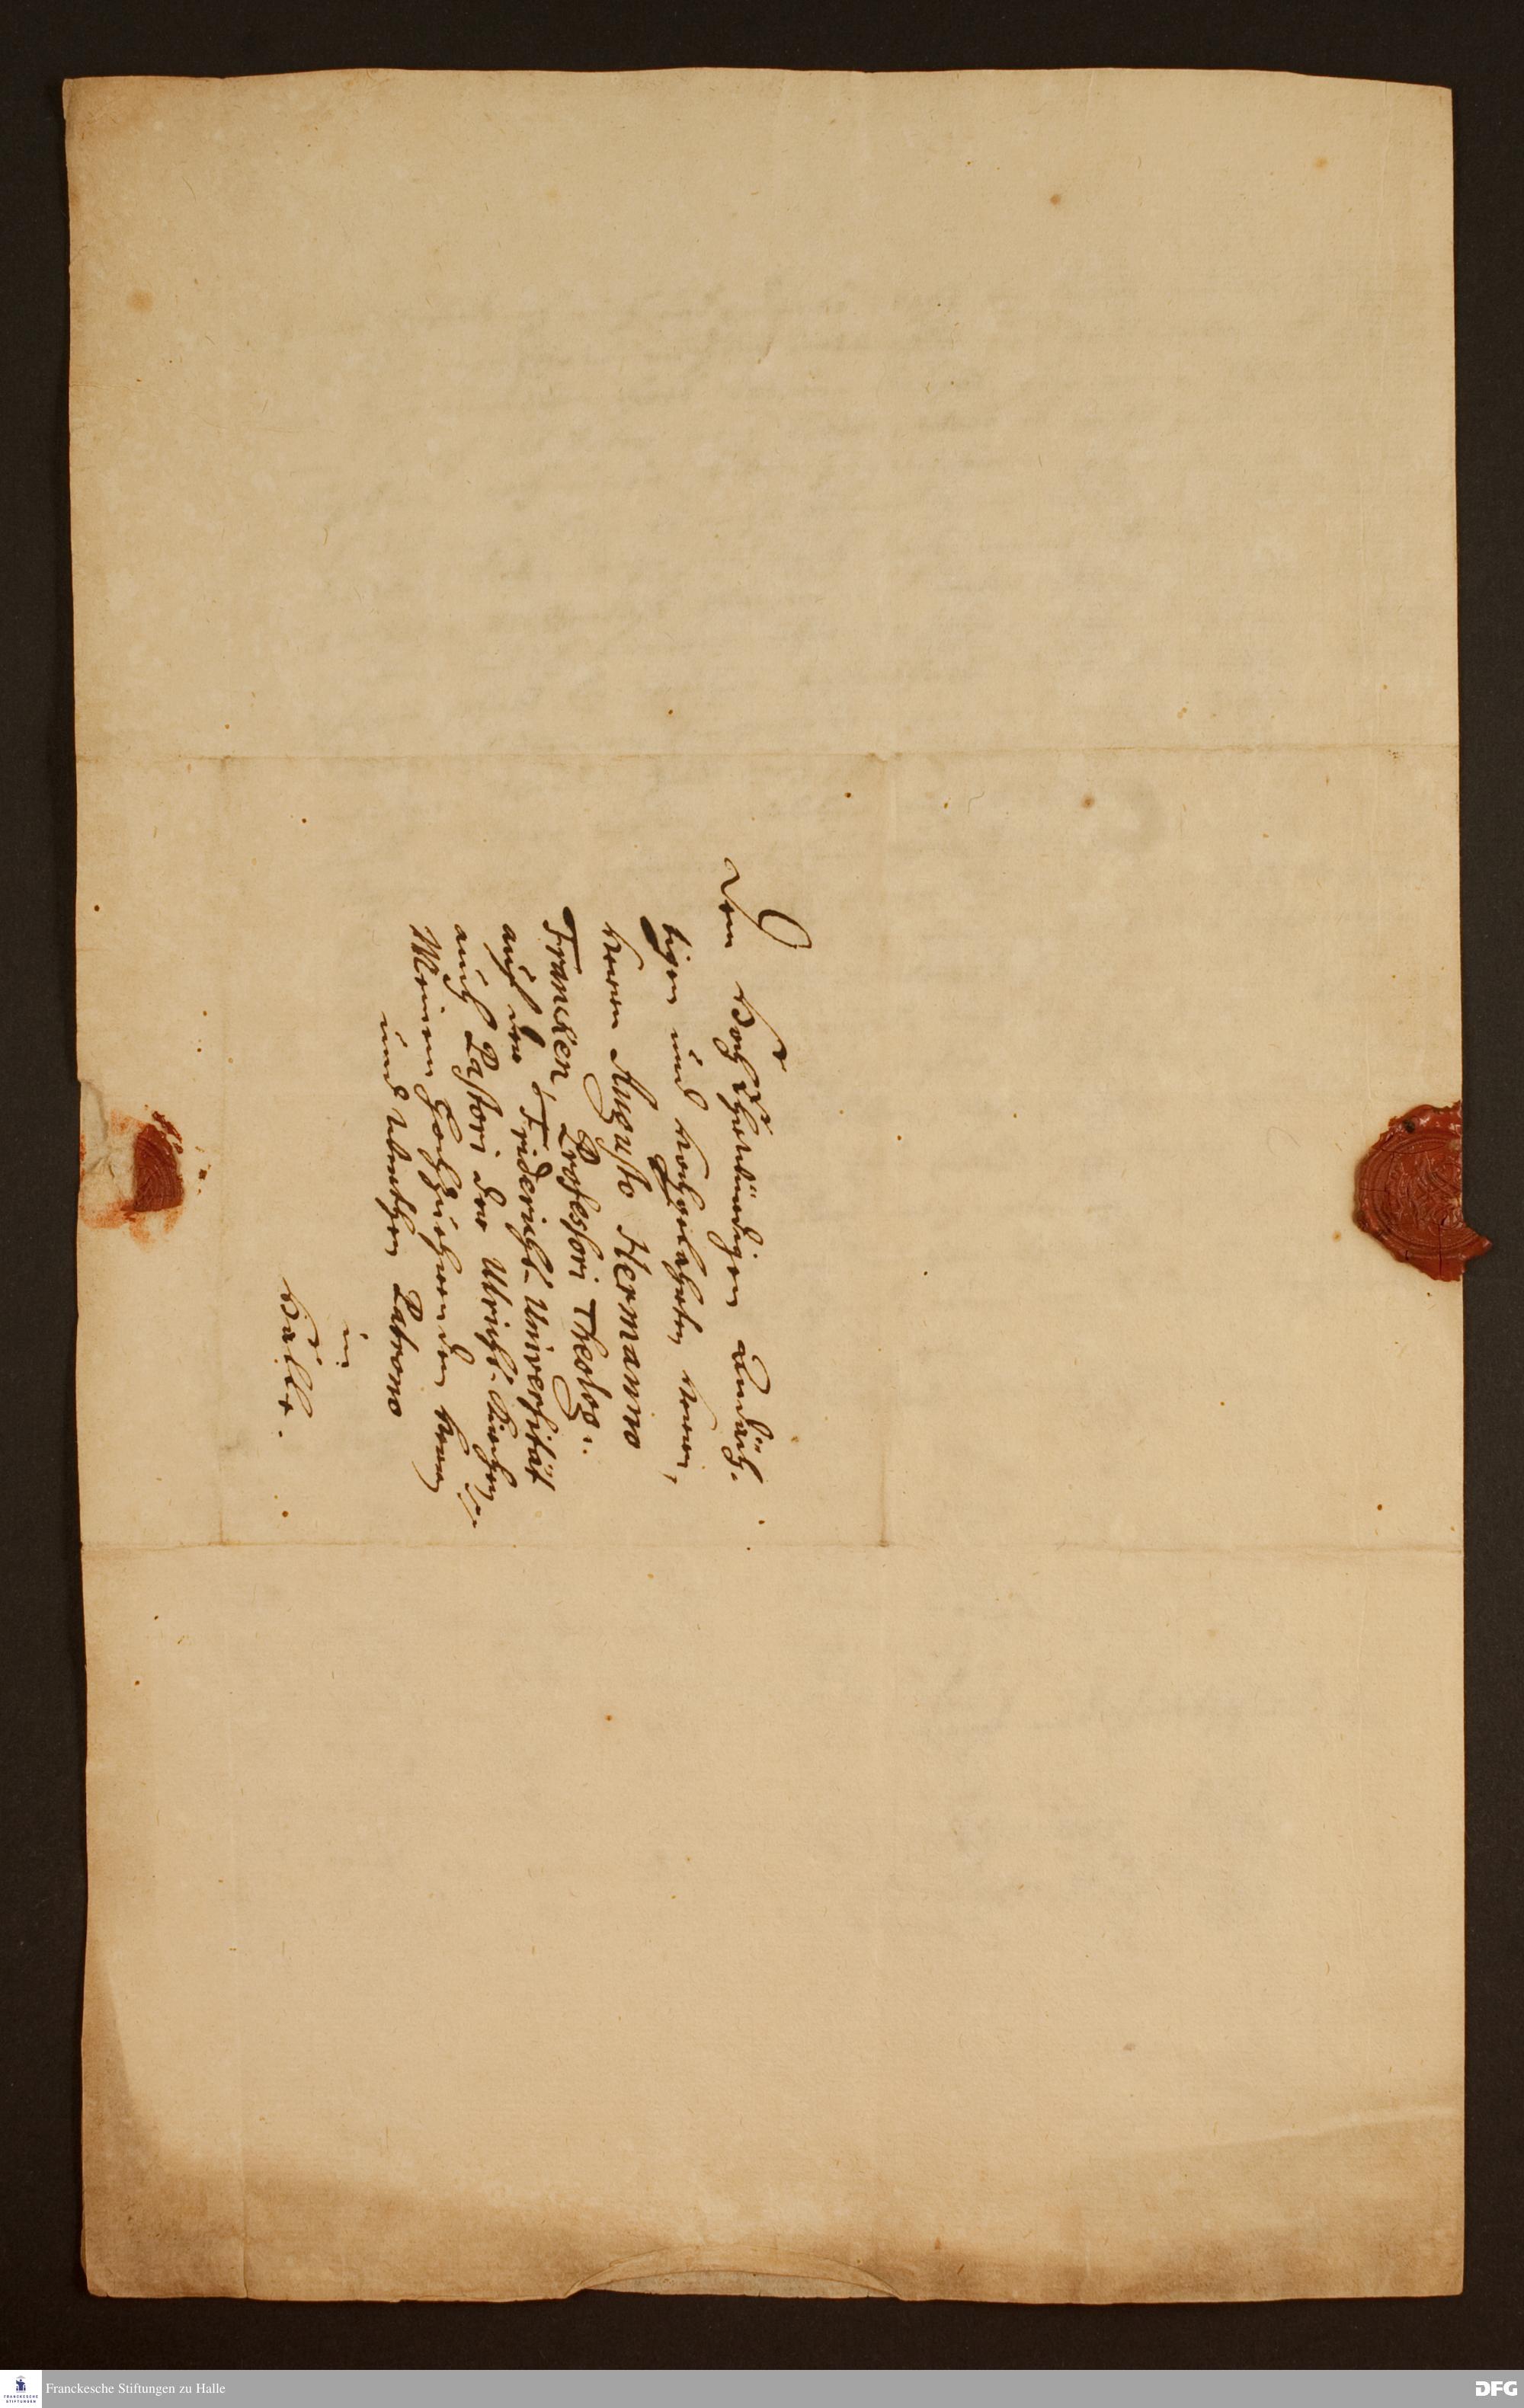 Dem HochEhrwürdigen Andäch-
tigen und hochgelahrten Herrn,
Herrn Augusto Hermanno
Francken, Professori Theolog:.
auf der Friderichs-Universität
auch Pastori der Ulrichs-Kirchen
Meinem Hochzuehrenden Herrn
und werthen Patrono
in
Halle.
Franckesche Stiftungen zu Halle
FRANCKESCHE
STIFTUNGEN
DFG